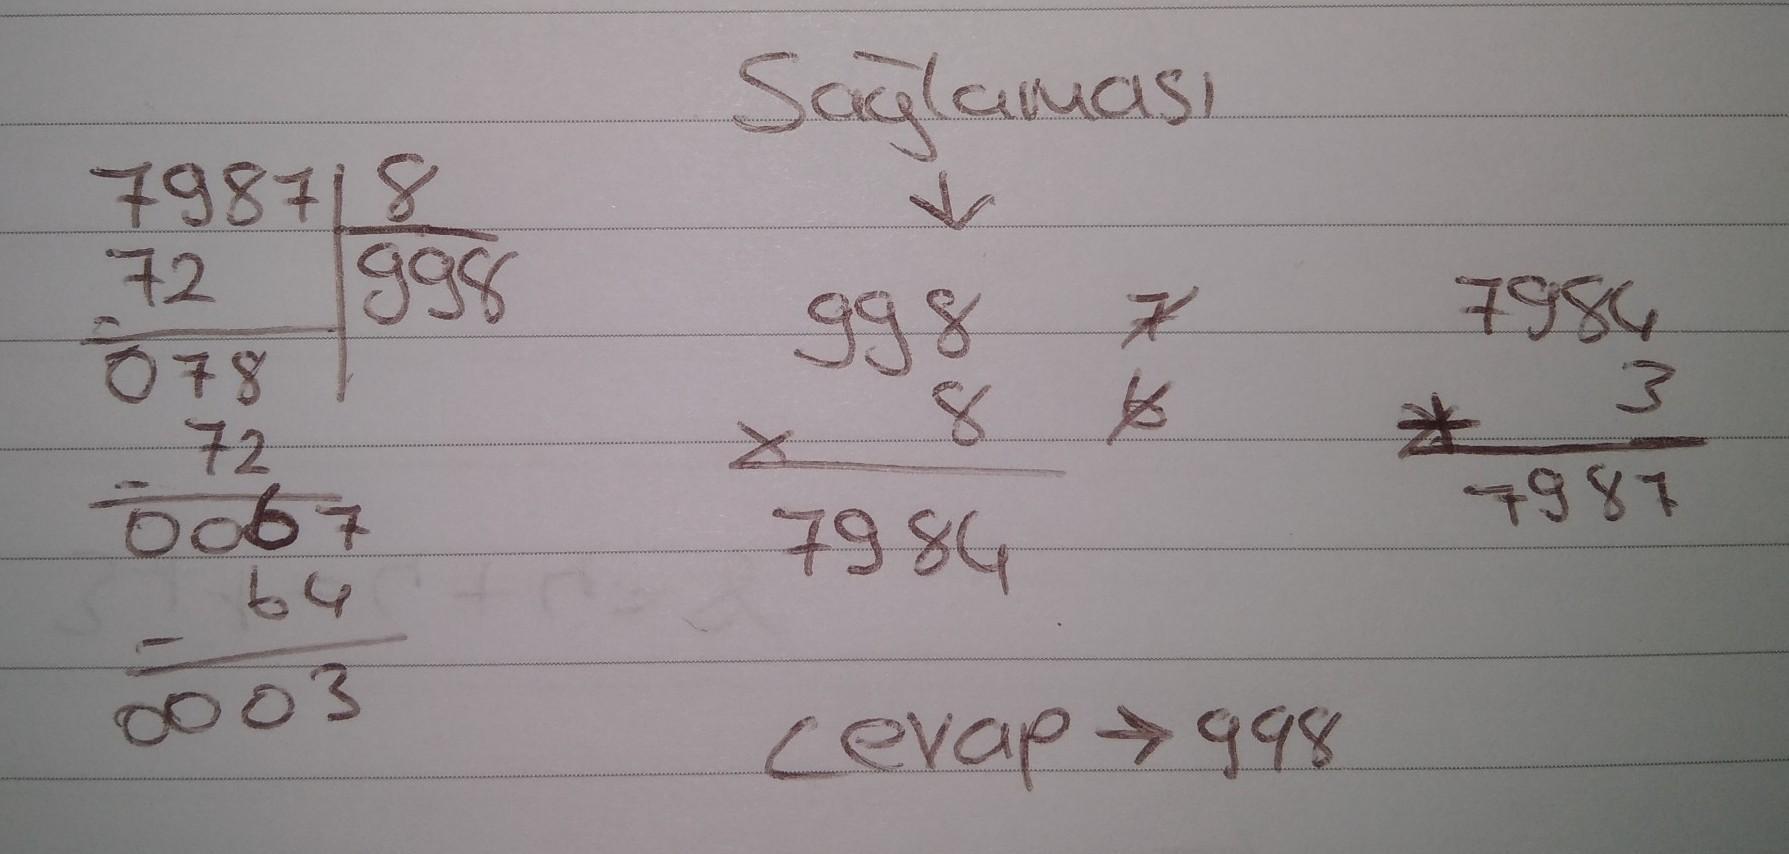 Sağlaması
↓
7987 | 8
72 | 998
-
078
72
-
0067
64
-
0003
998 7
8 6
x
7984
7984
3
+
7987
Cevap → 998